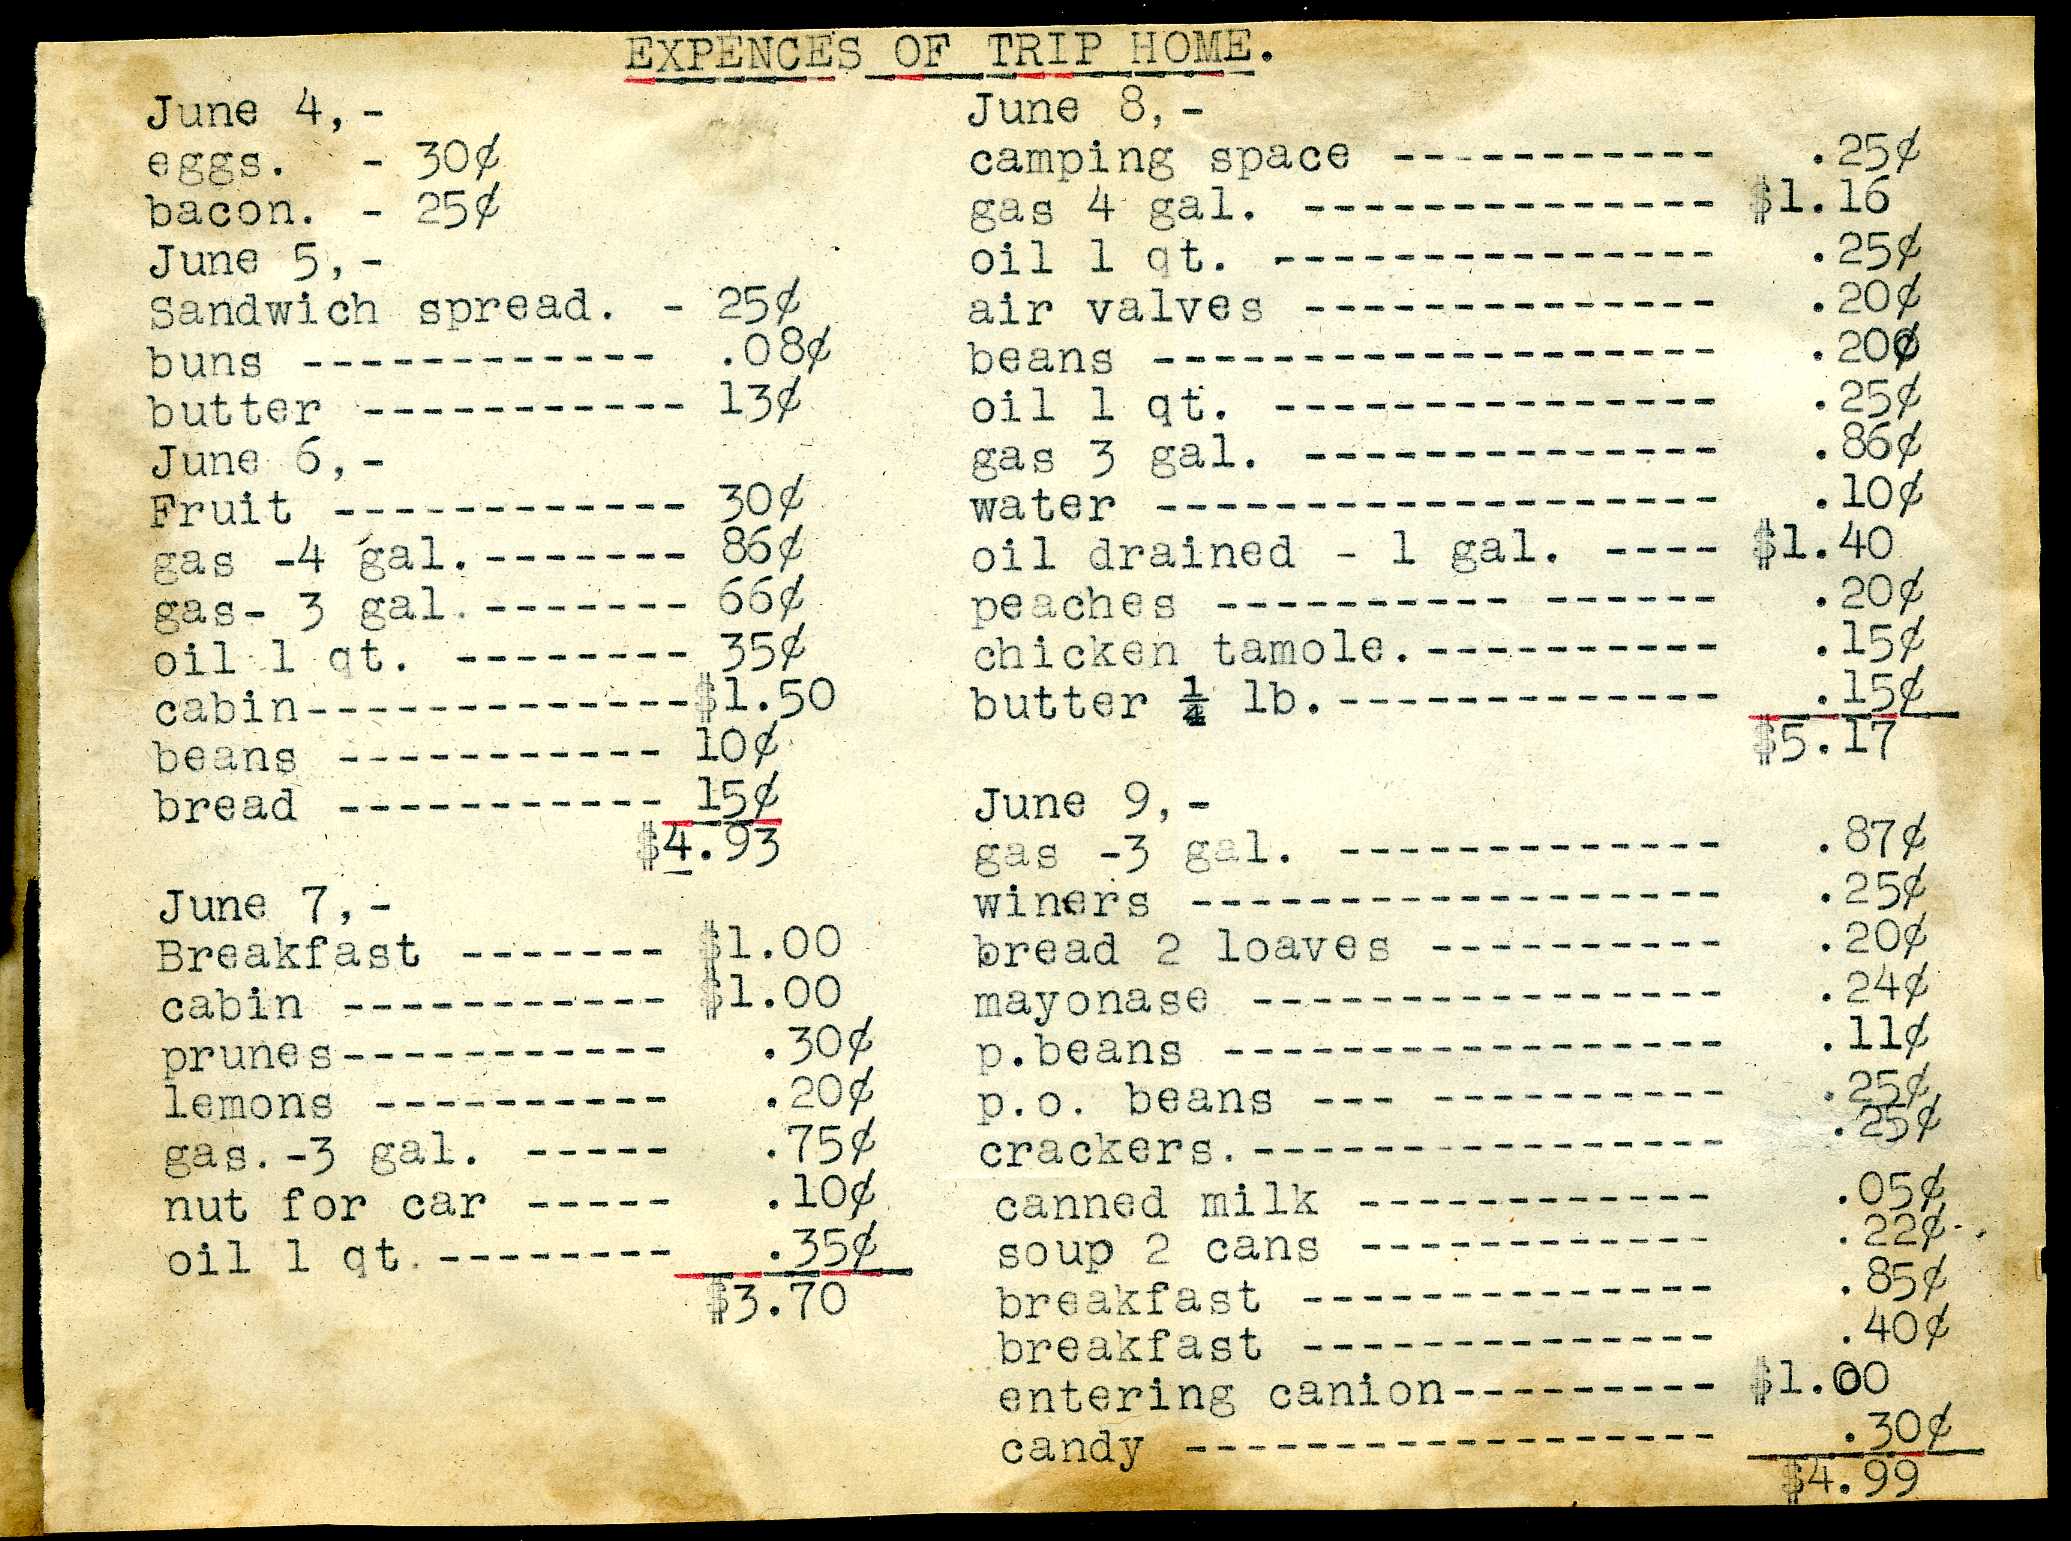 EXPENCES OF TRIP HOME.
June 4,-
eggs. - 30¢
bacon. - 25¢
June 5,-
Sandwich spread. - 25¢
buns ------------ .08¢
butter ----------- 13¢
June 6,-
Fruit ------------ 30¢
gas -4 gal.------- 86¢
gas- 3 gal.------- 66¢
oil 1 qt. -------- 35¢
cabin-------------$1.50
beans ----------- 10¢
bread ----------- 15¢
$4.93
June 7,-
Breakfast ------- $1.00
cabin ----------- $1.00
prunes----------- .30¢
lemons ---------- .20¢
gas.-3 gal. ----- .75¢
nut for car ----- .10¢
oil 1 qt.-------- .35¢
$3.70
June 8,-
camping space ----------- .25¢
gas 4 gal. -------------- $1.16
oil 1 qt. --------------- .25¢
air valves -------------- .20¢
beans ------------------- .20¢
oil 1 qt. --------------- .25¢
gas 3 gal. -------------- .86¢
water ------------------- .10¢
oil drained - 1 gal. ---- $1.40
peaches ---------- ------ .20¢
chicken tamole.---------- .15¢
butter ¼ lb.------------- .15¢
$5.17
June 9,-
gas -3 gal. ------------- .87¢
winers ------------------ .25¢
bread 2 loaves ---------- .20¢
mayonase ---------------- .24¢
p.beans ----------------- .11¢
p.o. beans --- ---------- .25¢
crackers.---------------- .25¢
canned milk ------------ .05¢
soup 2 cans ------------ .22¢
breakfast -------------- .85¢
breakfast -------------- .40¢
entering canion--------- $1.00
candy ------------------ .30¢
$4.99